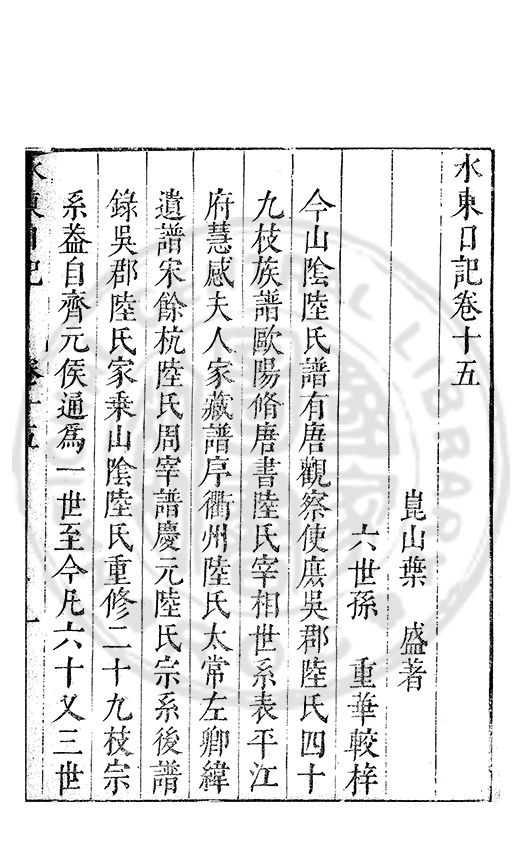 水東日記卷十五
崑山葉　盛著
六世孫　重華較梓
今山陰陸氏譜有唐觀察使庶吳郡陸氏四十
九枝族譜歐陽脩唐書陸氏宰相世系表平江
府慧感夫人家藏譜序衢州陸氏太常左卿緯
遺譜宋餘杭陸氏周宰譜慶元陸氏宗系後譜
錄吳郡陸氏家乗山陰陸氏重修二十九枝宗
系葢自齊元侯通爲一世至今凡六十又三世
水東日記　卷十五　一